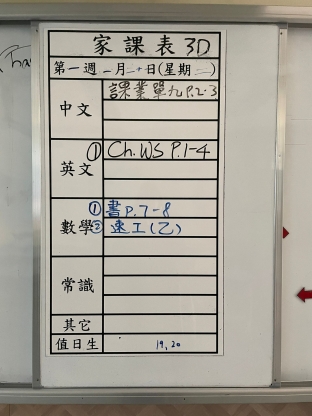 家課表 3D
第一週 一月二十日(星期二)
中文 課業單九 P.2-3
英文 ① Ch. WS P.1-4
數學 ① 書 P.7-8
② 速工(乙)
常識
其它
值日生 19, 20